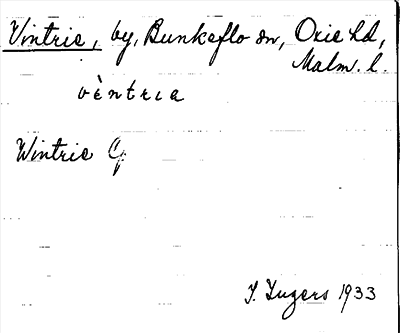 Vintrie, by, Bunkeflo sn, Oxie hd,
Malm. l.
vèntria
Wintrie G
I. Ingers 1933